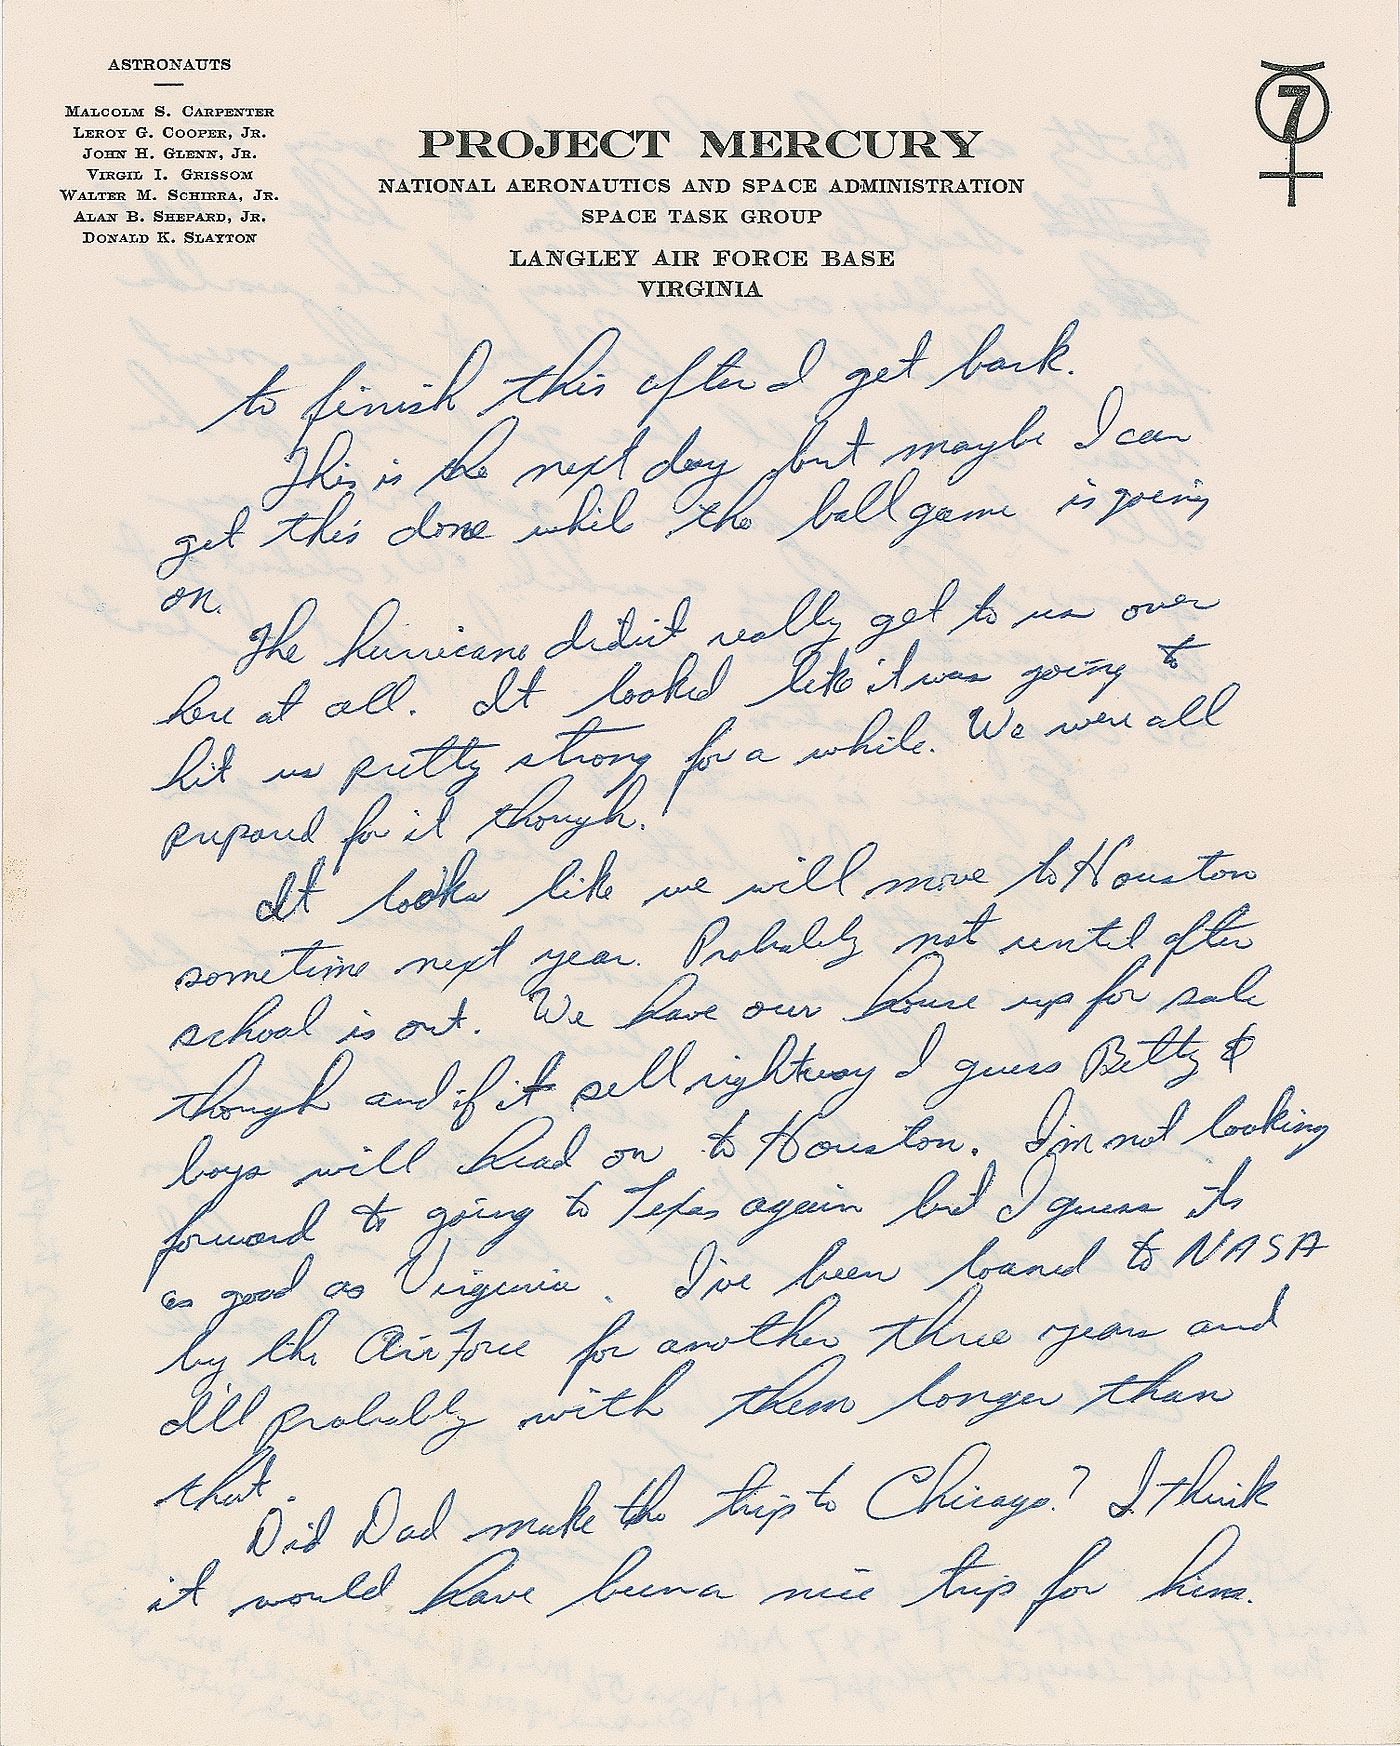 ASTRONAUTS
MALCOLM S. CARPENTER
LEROY G. COOPER, JR.
JOHN H. GLENN, JR.
VIRGIL I. GRISSOM
WALTER M. SCHIRRA, JR.
ALAN B. SHEPARD, JR.
DONALD K. SLAYTON
7
PROJECT MERCURY
NATIONAL AERONAUTICS AND SPACE ADMINISTRATION
SPACE TASK GROUP
LANGLEY AIR FORCE BASE
VIRGINIA
to finish this after I get back.
This is the next day but maybe I can
get this done while the ball game is going
on.
The hurricane didn't really get to us over
here at all. It looked like it was going to
hit us pretty strong for a while. We were all
prepared for it though.
It looks like we will move to Houston
sometime next year. Probably not until after
school is out. We have our house up for sale
though and if it sell rightway I guess Betty &
boys will head on to Houston. I'm not looking
forward to going to Texas again but I guess its
as good as Virginia. I've been loaned to NASA
by the Air Force for another three years and
I'll probably with them longer than
that.
Did Dad make the trip to Chicago? I think
it would have been a nice trip for him.